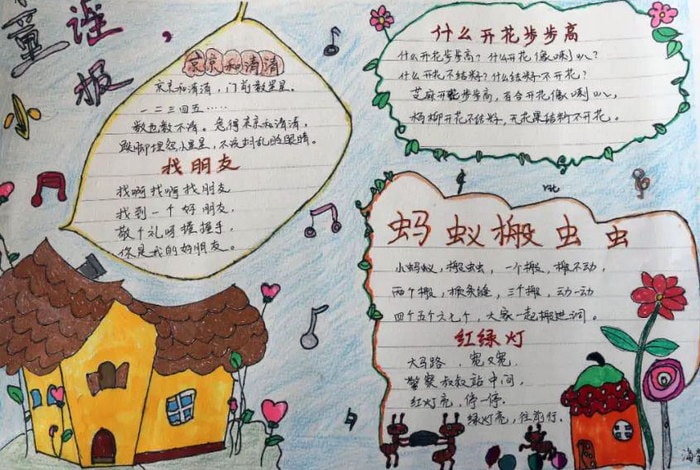 童谣
小报
京京和清清
京京和清清，门前数星星。
一二三四五……
数也数不清。急得京京和清清，
跺脚埋怨小星星，不该封乱眨眼睛。
找朋友
找啊找啊找朋友
找到一个好朋友，
敬个礼呀握握手，
你是我的好朋友。
什么开花步步高
什么开花步步高？什么开花像喇叭？
什么开花不结籽？什么结籽不开花？
芝麻开花步步高，百合开花像喇叭，
杨柳开花不结籽，无花果结籽不开花。
蚂蚁搬虫虫
小蚂蚁，搬虫虫，一个搬，搬不动，
两个搬，掀条缝，三个搬，动一动
四个五个六七个，大家一起搬进洞。
红绿灯
大马路，宽又宽，
警察叔叔站中间，
红灯亮，停一停，
绿灯亮，往前行。